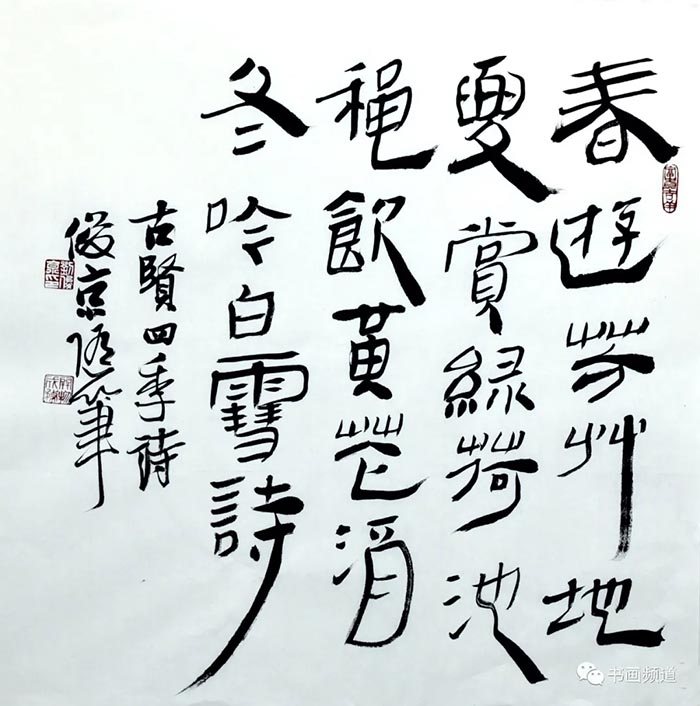 春遊芳艸地
夏賞緑荷池
穐飲黃花酒
冬吟白雪詩
古賢四季詩
俊京随筆
书画频道